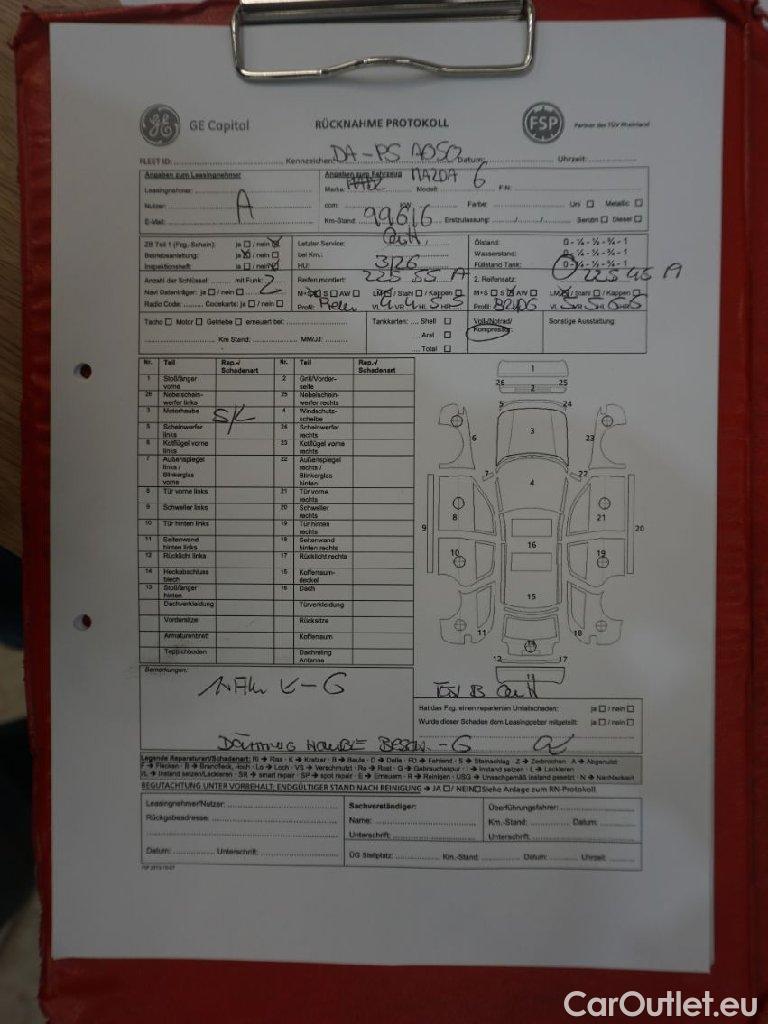 GE Capital
RÜCKNAHME PROTOKOLL
FSP
Partner des TÜV Rheinland
FLEET ID:
Kennzeichen: DA-PS
Datum:
Uhrzeit:
Angaben zum Leasingnehmer
Angaben zum Fahrzeug
Leasingnehmer:
Marke: MAZDA
Modell: 6
FIN:
Nutzer: A
ccm: KW
Farbe:
Uni □ Metallic □
E-Mail:
Km-Stand: 99616
Erstzulassung:
Benzin □ Diesel □
ZB Teil 1 (Frg. Schein): ja □ / nein ☒
Letzter Service:
Ölstand: 0 - ¼ - ½ - ¾ - 1
Betriebsanleitung: ja ☒ / nein □
bei Km.:
Wasserstand: 0 - ¼ - ½ - ¾ - 1
Inspektionsheft: ja □ / nein ☒
HU: 3/26
Füllstand Tank: 0 - ¼ - ½ - ¾ - 1
Anzahl der Schlüssel: mit Funk: 2
Reifen montiert: 225 55 A
2. Reifensatz: 225 45 A
Navi Datenträger: ja □ / nein □
M+S ☒ S □ A/W □
LM ☒ / Stahl / Kappen □
M+S □ S ☒ A/W □
LM ☒ / Stahl □ / Kappen □
Radio Code: Codekarte: ja □ / nein □
Profil: VL 4 VR 4 HL 5 HR 5
Profil: VL 5 VR 5 HL 6 HR 5
Tacho □ Motor □ Getriebe □ erneuert bei:
Km Stand: MM/JJ:
Tankkarten: Shell □
Aral □
Total □
Voll-/Notrad/
Kompressor
Sonstige Ausstattung:
Nr. Teil Rep./ Schadenart
Nr. Teil Rep./ Schadenart
1 Stoßfänger vorne
2 Grill/Vorderseite
26 Nebelscheinwerfer links
25 Nebelscheinwerfer rechts
3 Motorhaube S/L
4 Windschutzscheibe
5 Scheinwerfer links
24 Scheinwerfer rechts
6 Kotflügel vorne links
23 Kotflügel vorne rechts
7 Außenspiegel links / Blinkerglas vorne
22 Außenspiegel rechts / Blinkerglas hinten
8 Tür vorne links
21 Tür vorne rechts
9 Schweller links
20 Schweller rechts
10 Tür hinten links
19 Tür hinten rechts
11 Seitenwand hinten links
18 Seitenwand hinten rechts
12 Rücklicht links
17 Rücklicht rechts
14 Heckabschlussblech
15 Kofferraumdeckel
13 Stoßfänger hinten
16 Dach
Dachverkleidung
Türverkleidung
Vordersitze
Rücksitze
Armaturenbrett
Kofferraum
Teppichboden
Dachreling Antenne
1
26 2 25
5 24
3
6
23
7 22
4
8
21
9
20
16
10
19
15
11
18
12 17
Bemerkungen:
Hat das Fzg. einen reparierten Unfallschaden: ja □ / nein □
Wurde dieser Schaden dem Leasinggeber mitgeteilt: ja □ / nein □
DÄMMUNG HAUBE BESCH. - G
Legende Reparaturen/Schadenart: R → Riss - K → Kratzer - B → Beule - D → Delle - FD → Fehlend - S → Steinschlag - Z → Zerbrochen - A → Abgenutzt
F → Flecken - B → Brandfleck, -loch - Lo → Loch - VS → Verschmutzt - Ro → Rost - G → Gebrauchsspur - I → Instand setzen - L → Lackieren
I/L → Instand setzen/Lackieren - SR → smart repair - SP → spot repair - E → Erneuern - R → Reinigen - USG → Unsachgemäß instand gesetzt - N → Nacharbeit
BEGUTACHTUNG UNTER VORBEHALT: ENDGÜLTIGER STAND NACH REINIGUNG → JA □ / NEIN □ Siehe Anlage zum RN-Protokoll
Leasingnehmer/Nutzer:
Sachverständiger:
Überführungsfahrer:
Rückgabeadresse:
Name:
Km.-Stand: Datum:
Unterschrift:
Unterschrift:
Datum: Unterschrift:
ÜG Stellplatz: Km.-Stand: Datum: Uhrzeit:
CarOutlet.eu